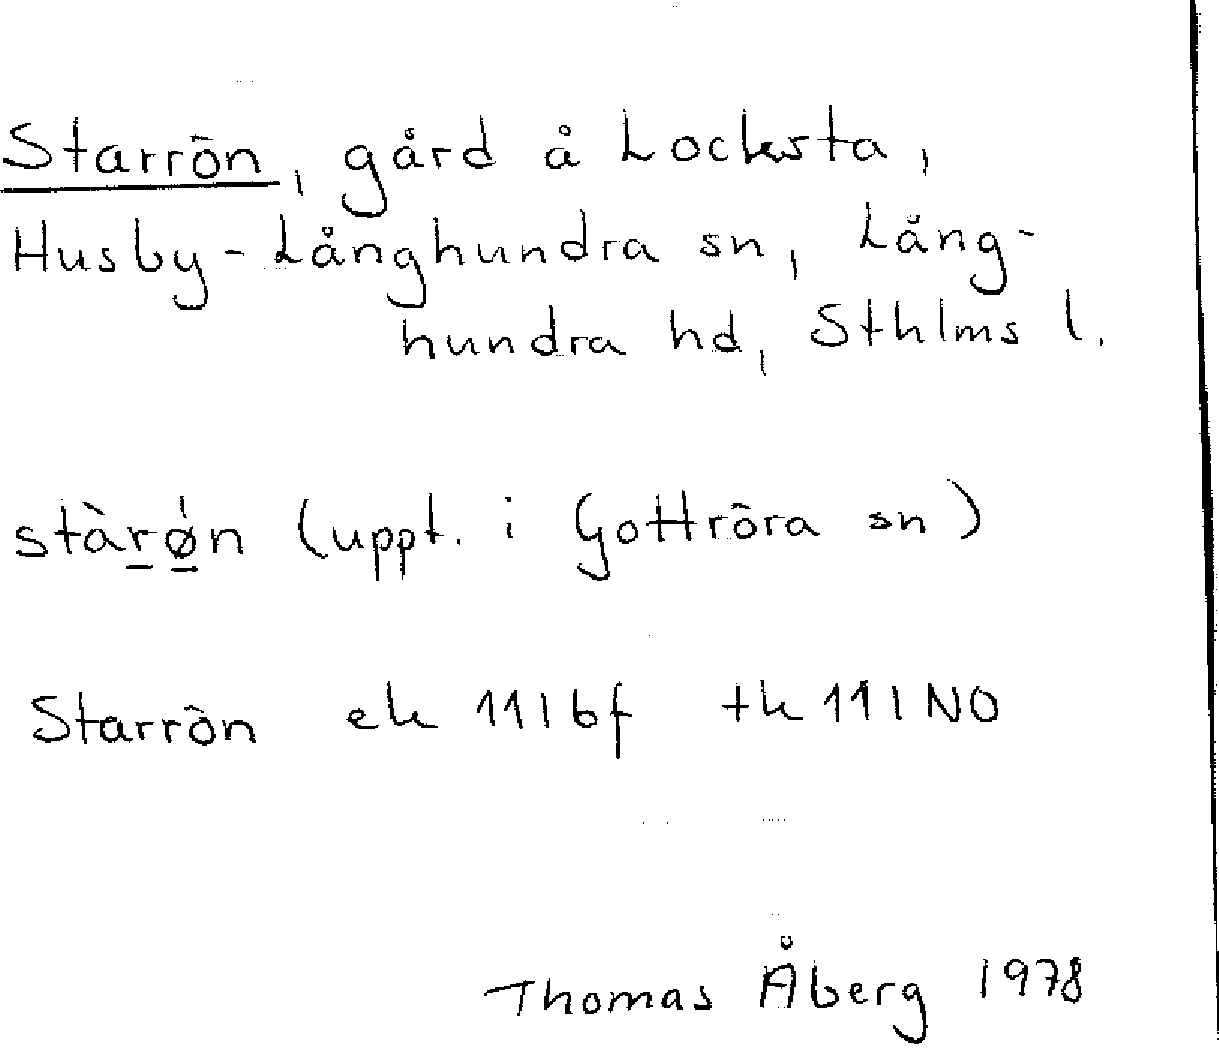 Starrön, gård å Locksta,
Husby-Långhundra sn, Lång-
hundra hd, Sthlms l.
stàrǿn (uppt. i Gottröra sn)
Starrön ek 11I6f tk 11I NO
Thomas Åberg 1978